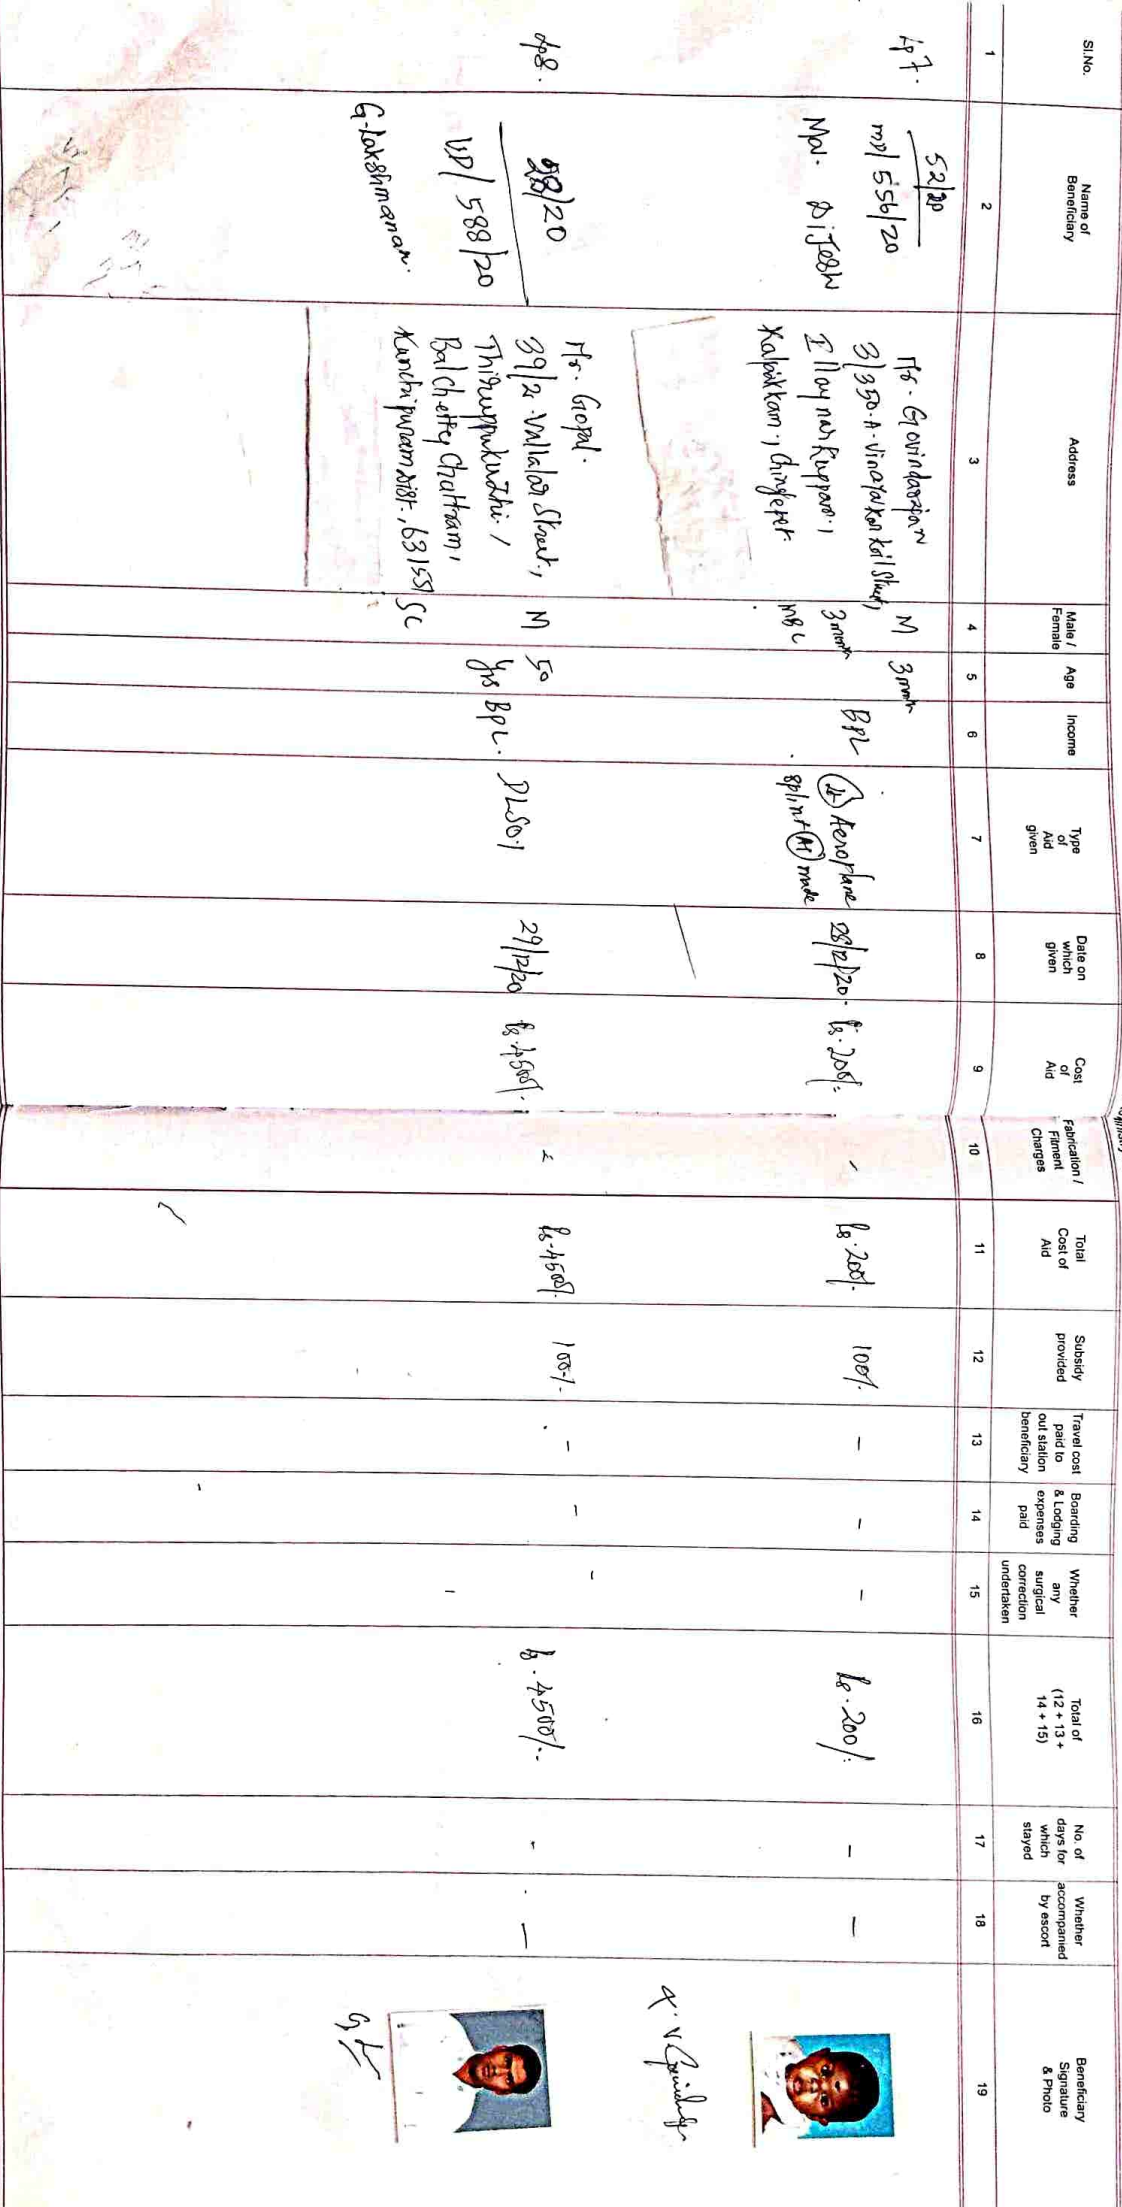 Sl.No.
Name of
Beneficiary
Address
Male /
Female
Age
Income
Type
of
Aid
given
Date on
which
given
Cost
of
Aid
Fabrication /
Fitment
Charges
Total
Cost of
Aid
Subsidy
provided
Travel cost
paid to
out station
beneficiary
Boarding
& Lodging
expenses
paid
Whether
any
surgical
correction
undertaken
Total of
(12 + 13 +
14 + 15)
No. of
days for
which
stayed
Whether
accompanied
by escort
Beneficiary
Signature
& Photo
1 2 3 4 5 6 7 8 9 10 11 12 13 14 15 16 17 18 19
47.
52/20
MD/ 556/20
Mas. DiJesh
Mr. Govindarajan
3/350-A. Vinayakar Koil Street,
Illaynar Kuppam,
Kalpakkam, Chingleput.
M
3 month
MBC
3 month
BPL
Aeroplane
splint made
28/12/20.
Rs. 200/-
-
Rs. 200/-
100%
-
-
-
Rs. 200/-
-
-
48.
28/20
VD/ 588/20
G. Lakshmanan.
Mr. Gopal.
39/2. Vallalar Street,
Thiruppukuzhi,
Balchetty Chattram,
Kanchipuram Dist, 631551
M
SC
50
yrs
BPL.
29/12/20
Rs. 4500/-
Rs. 4500/-
100%.
-
-
-
Rs. 4500/-
-
-